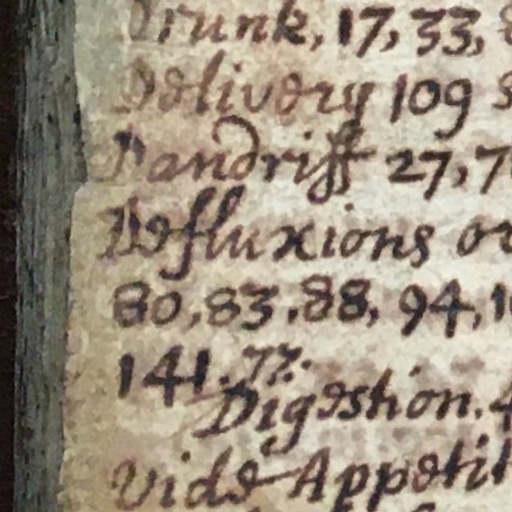 Drunk, 17, 33,
Delivery 109
Dandriff 27, 7
Defluxions or
80, 83, 88, 94, 1
141. 72.
Digestion. 4
Vide Appetit